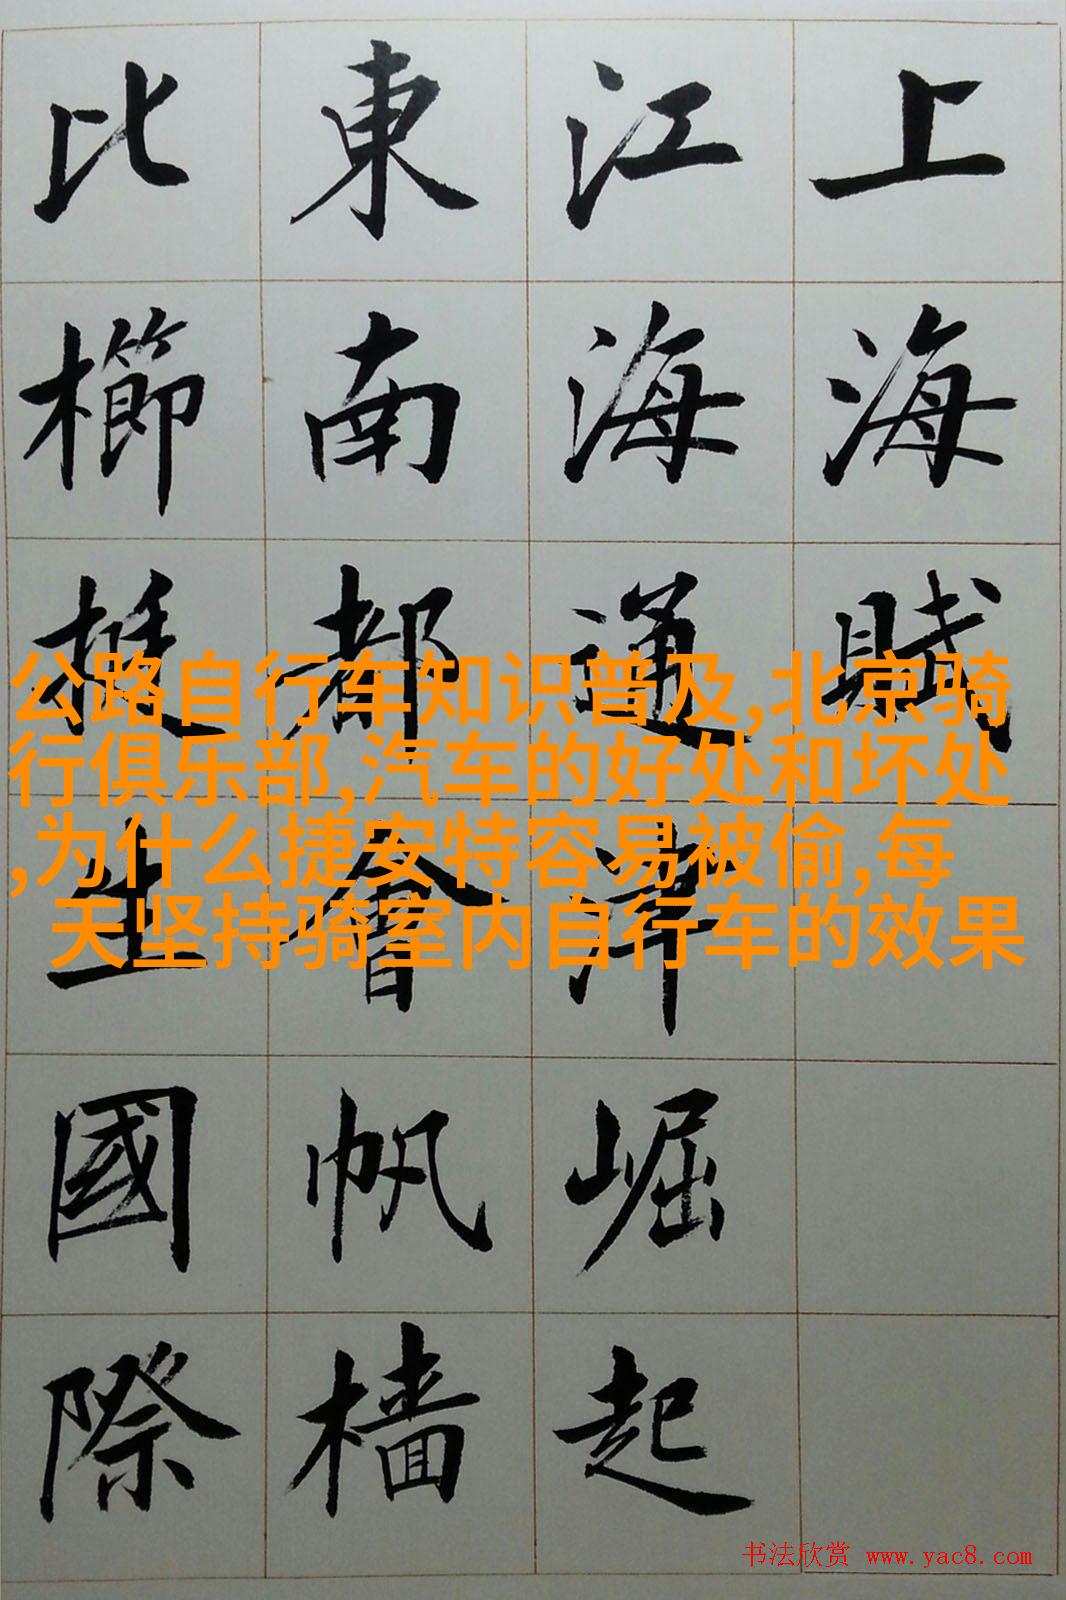 上海賦
江海通津崛起
東南都會帆檣
比櫛挺生國際
公路自行车知识普及,北京骑
行俱乐部,汽车的好处和坏处
,为什么捷安特容易被偷,每
天坚持骑室内自行车的效果
书法欣赏 www.yac8.com